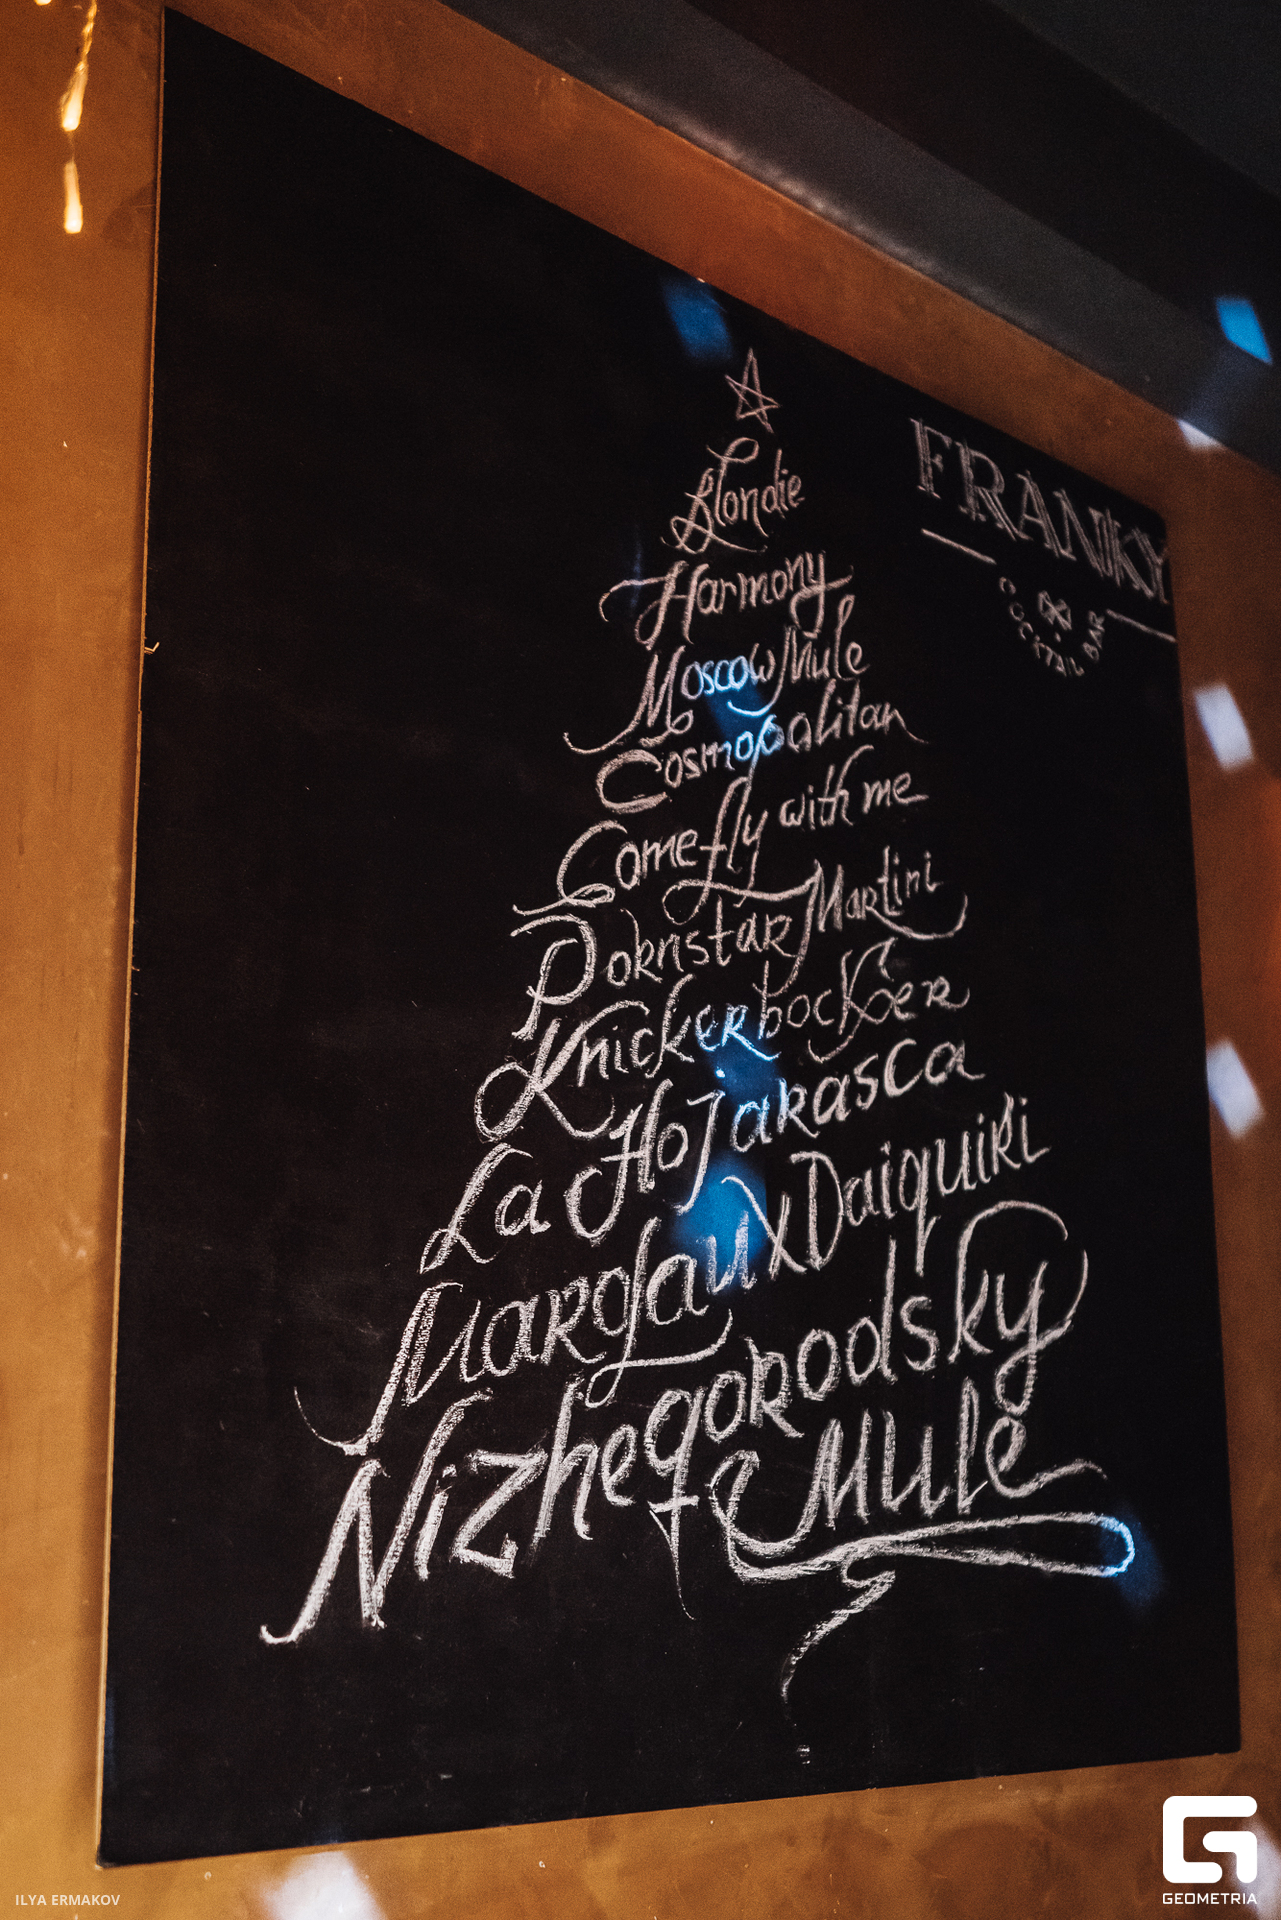 Blondie
Harmony
Moscow Mule
Cosmopolitan
Come fly with me
Pornstar Martini
Knickerbocker
La Hojarasca
Margaux Daiquiri
Nizhegorodsky
Mule
FRANKY
COCKTAIL BAR
ILYA ERMAKOV
GEOMETRIA